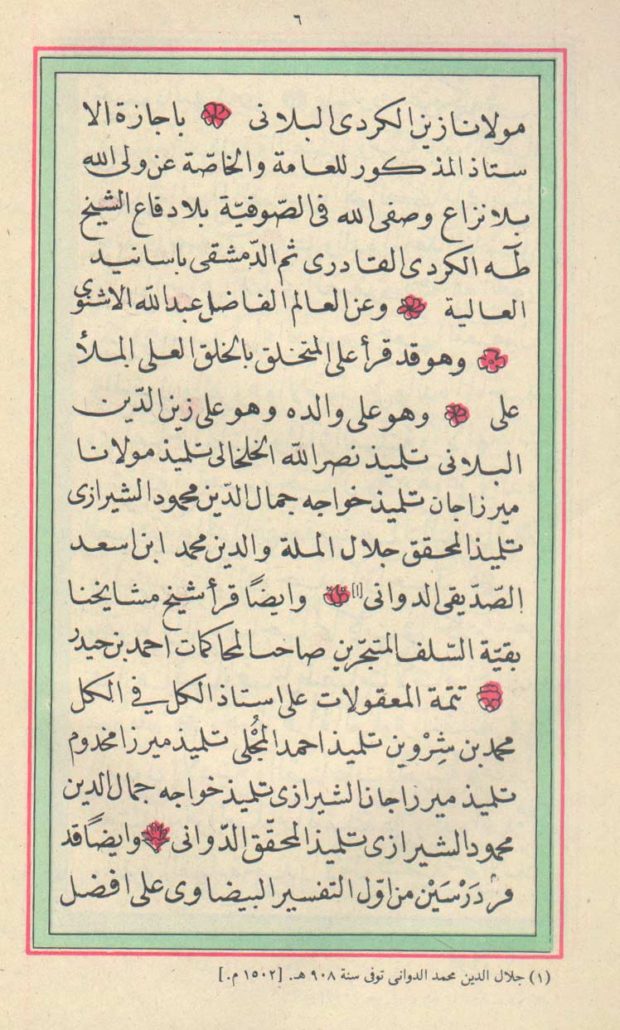 ٦
مولانا زين الكردى البلانى باجازة الا
ستاذ المذكور للعامة والخاصّة عن ولى الله
بلا نزاع وصفى الله فى الصّوفيّة بلا دفاع الشيخ
طه الكردى القادرى ثم الدّمشقى باسانيد
العالية وعن العالم الفاضل عبدالله الاشنوي
وهو قد قرأ على المتخلق بالخلق العلى الملأ
على وهو على والده وهو على زين الدّين
البلانى تلميذ نصر الله الخلخالى تلميذ مولانا
ميرزاجان تلميذ خواجه جمال الدّين محمود الشيرازى
تلميذ المحقق جلال الملة والدين محمد ابن اسعد
الصّديقى الدوانى [١] وايضًا قرأ شيخ مشايخنا
بقيّة السّلف المتبحّرين صاحب المحاكمات احمد بن حيدر
تتمة المعقولات على استاذ الكل فى الكل
محمد بن شِرْوين تلميذ احمد المجُلى تلميذ ميرزا مخدوم
تلميذ ميرزاجان الشيرازى تلميذ خواجه جمال الدين
محمود الشيرازى تلميذ المحقّق الدّوانى وايضًا قد
قرأ دَرْسَيْن من اوّل التفسير البيضاوى على افضل
(١) جلال الدين محمد الدوانى توفى سنة ٩٠٨ هـ. [١٥٠٢ م.]